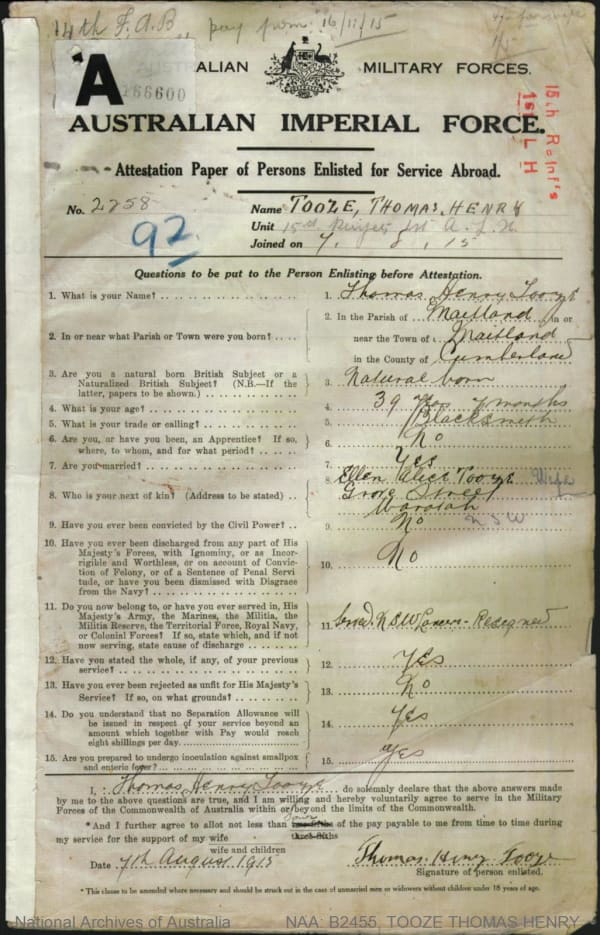 14th F.A.B. pay from 16/11/15
A
166600
AUSTRALIAN MILITARY FORCES.
AUSTRALIAN IMPERIAL FORCE.
15th Reinf's
1st L H
Attestation Paper of Persons Enlisted for Service Abroad.
No. 2258 Name TOOZE, THOMAS HENRY
92. Unit 1st A.L.H.
Joined on 7. 8. 15
Questions to be put to the Person Enlisting before Attestation.
1. What is your Name? 1. Thomas Henry Tooze
2. In or near what Parish or Town were you born? 2. In the Parish of Maitland in or
near the Town of Maitland
in the County of Cumberland
3. Are you a natural born British Subject or a
Naturalized British Subject? (N.B.—If the
latter, papers to be shown.) 3. Natural born
4. What is your age? 4. 39 yrs 7 months
5. What is your trade or calling? 5. Blacksmith
6. Are you, or have you been, an Apprentice? If so,
where, to whom, and for what period? 6. No
7. Are you married? 7. Yes
8. Who is your next of kin? (Address to be stated) 8. Ellen Alice Tooze Wife
Grove Street
Waratah
NSW
9. Have you ever been convicted by the Civil Power? 9. No
10. Have you ever been discharged from any part of His
Majesty's Forces, with Ignominy, or as Incor-
rigible and Worthless, or on account of Convic-
tion of Felony, or of a Sentence of Penal Servi
tude, or have you been dismissed with Disgrace
from the Navy? 10. No
11. Do you now belong to, or have you ever served in, His
Majesty's Army, the Marines, the Militia, the
Militia Reserve, the Territorial Force, Royal Navy,
or Colonial Forces? If so, state which, and if not
now serving, state cause of discharge 11. Served. NSW Lancers - Resigned
12. Have you stated the whole, if any, of your previous
service? 12. Yes
13. Have you ever been rejected as unfit for His Majesty's
Service? If so, on what grounds? 13. No
14. Do you understand that no Separation Allowance will
be issued in respect of your service beyond an
amount which together with Pay would reach
eight shillings per day 14. Yes
15. Are you prepared to undergo inoculation against smallpox
and enteric fever? 15. Yes
I, Thomas Henry Tooze do solemnly declare that the above answers made
by me to the above questions are true, and I am willing and hereby voluntarily agree to serve in the Military
Forces of the Commonwealth of Australia within or beyond the limits of the Commonwealth.
*And I further agree to allot not less than of the pay payable to me from time to time during
three-fifths
my service for the support of my wife
wife and children
Date 7th August 1915 Thomas Henry Tooze
Signature of person enlisted.
*This clause to be amended where necessary and should be struck out in the case of unmarried men or widowers without children under 18 years of age.
National Archives of Australia NAA: B2455, TOOZE THOMAS HENRY